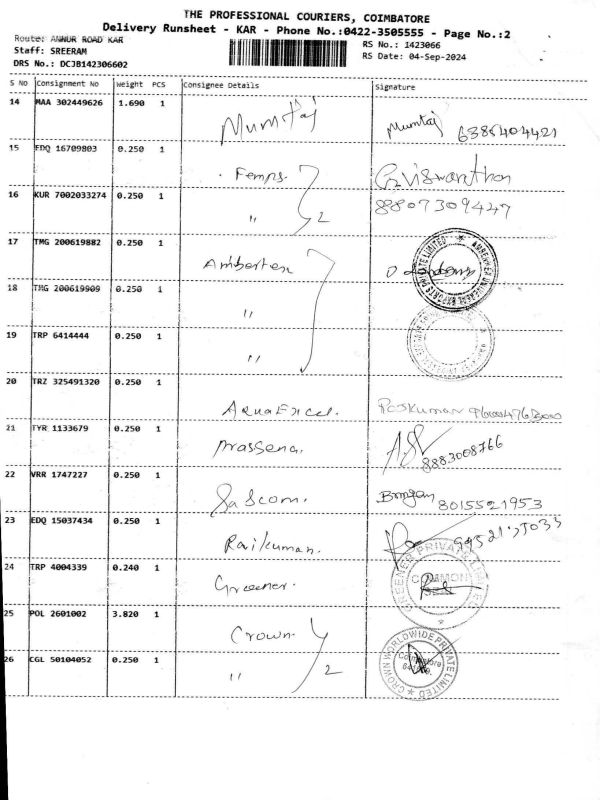 THE PROFESSIONAL COURIERS, COIMBATORE
Delivery Runsheet - KAR - Phone No.:0422-3505555 - Page No.:2
Route: ANNUR ROAD KAR
Staff: SREERAM
DRS No.: DCJB142306602
RS No.: 1423066
RS Date: 04-Sep-2024
S No Consignment No Weight PCS Consignee Details Signature
14 MAA 302449626 1.690 1 Mumtaj Mumtaj 6385404421
15 EDQ 16709803 0.250 1 Femps. G.Viswanathan
16 KUR 7002033274 0.250 1 " 2 8807309447
17 TMG 200619882 0.250 1
18 TMG 200619909 0.250 1 "
19 TRP 6414444 0.250 1 "
20 TRZ 325491320 0.250 1 AquaExcel. Rajkumar
21 TYR 1133679 0.250 1 Prassena. 8883008766
22 VRR 1747227 0.250 1 Sascom. 8015521953
23 EDQ 15037434 0.250 1 Rajkumar.
24 TRP 4004339 0.240 1 Greener. GREENER PRIVATE LIMITED
25 POL 2601002 3.820 1 Crown
26 CGL 50104052 0.250 1 " 2 CROWN WORLDWIDE PRIVATE LIMITED Coimbatore